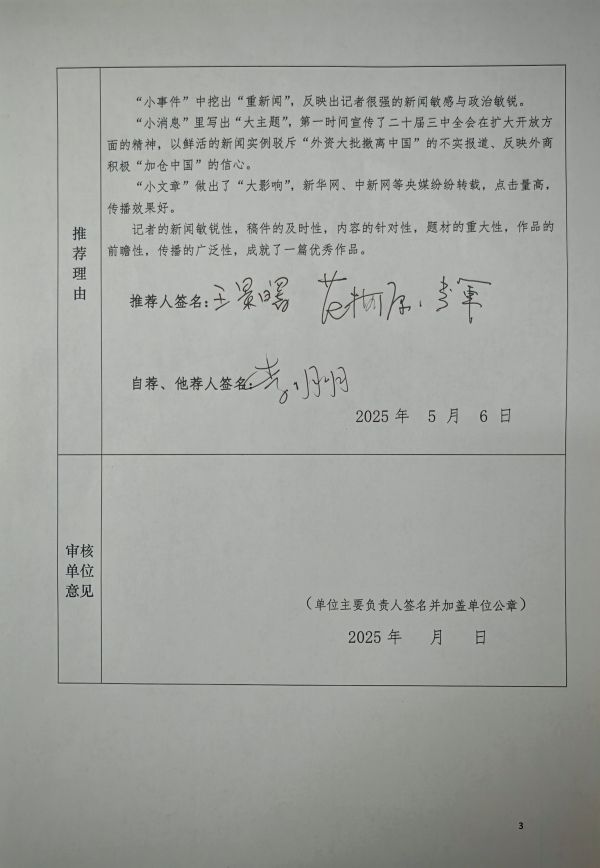 “小事件”中挖出“重新闻”，反映出记者很强的新闻敏感与政治敏锐。
“小消息”里写出“大主题”，第一时间宣传了二十届三中全会在扩大开放方
面的精神，以鲜活的新闻实例驳斥“外资大批撤离中国”的不实报道、反映外商
积极“加仓中国”的信心。
“小文章”做出了“大影响”，新华网、中新网等央媒纷纷转载，点击量高，
传播效果好。
记者的新闻敏锐性，稿件的及时性，内容的针对性，题材的重大性，作品的
前瞻性，传播的广泛性，成就了一篇优秀作品。
推荐理由
推荐人签名：王景曙
自荐、他荐人签名：
2025年 5月 6日
审核
单位
意见
（单位主要负责人签名并加盖单位公章）
2025年 月 日
3